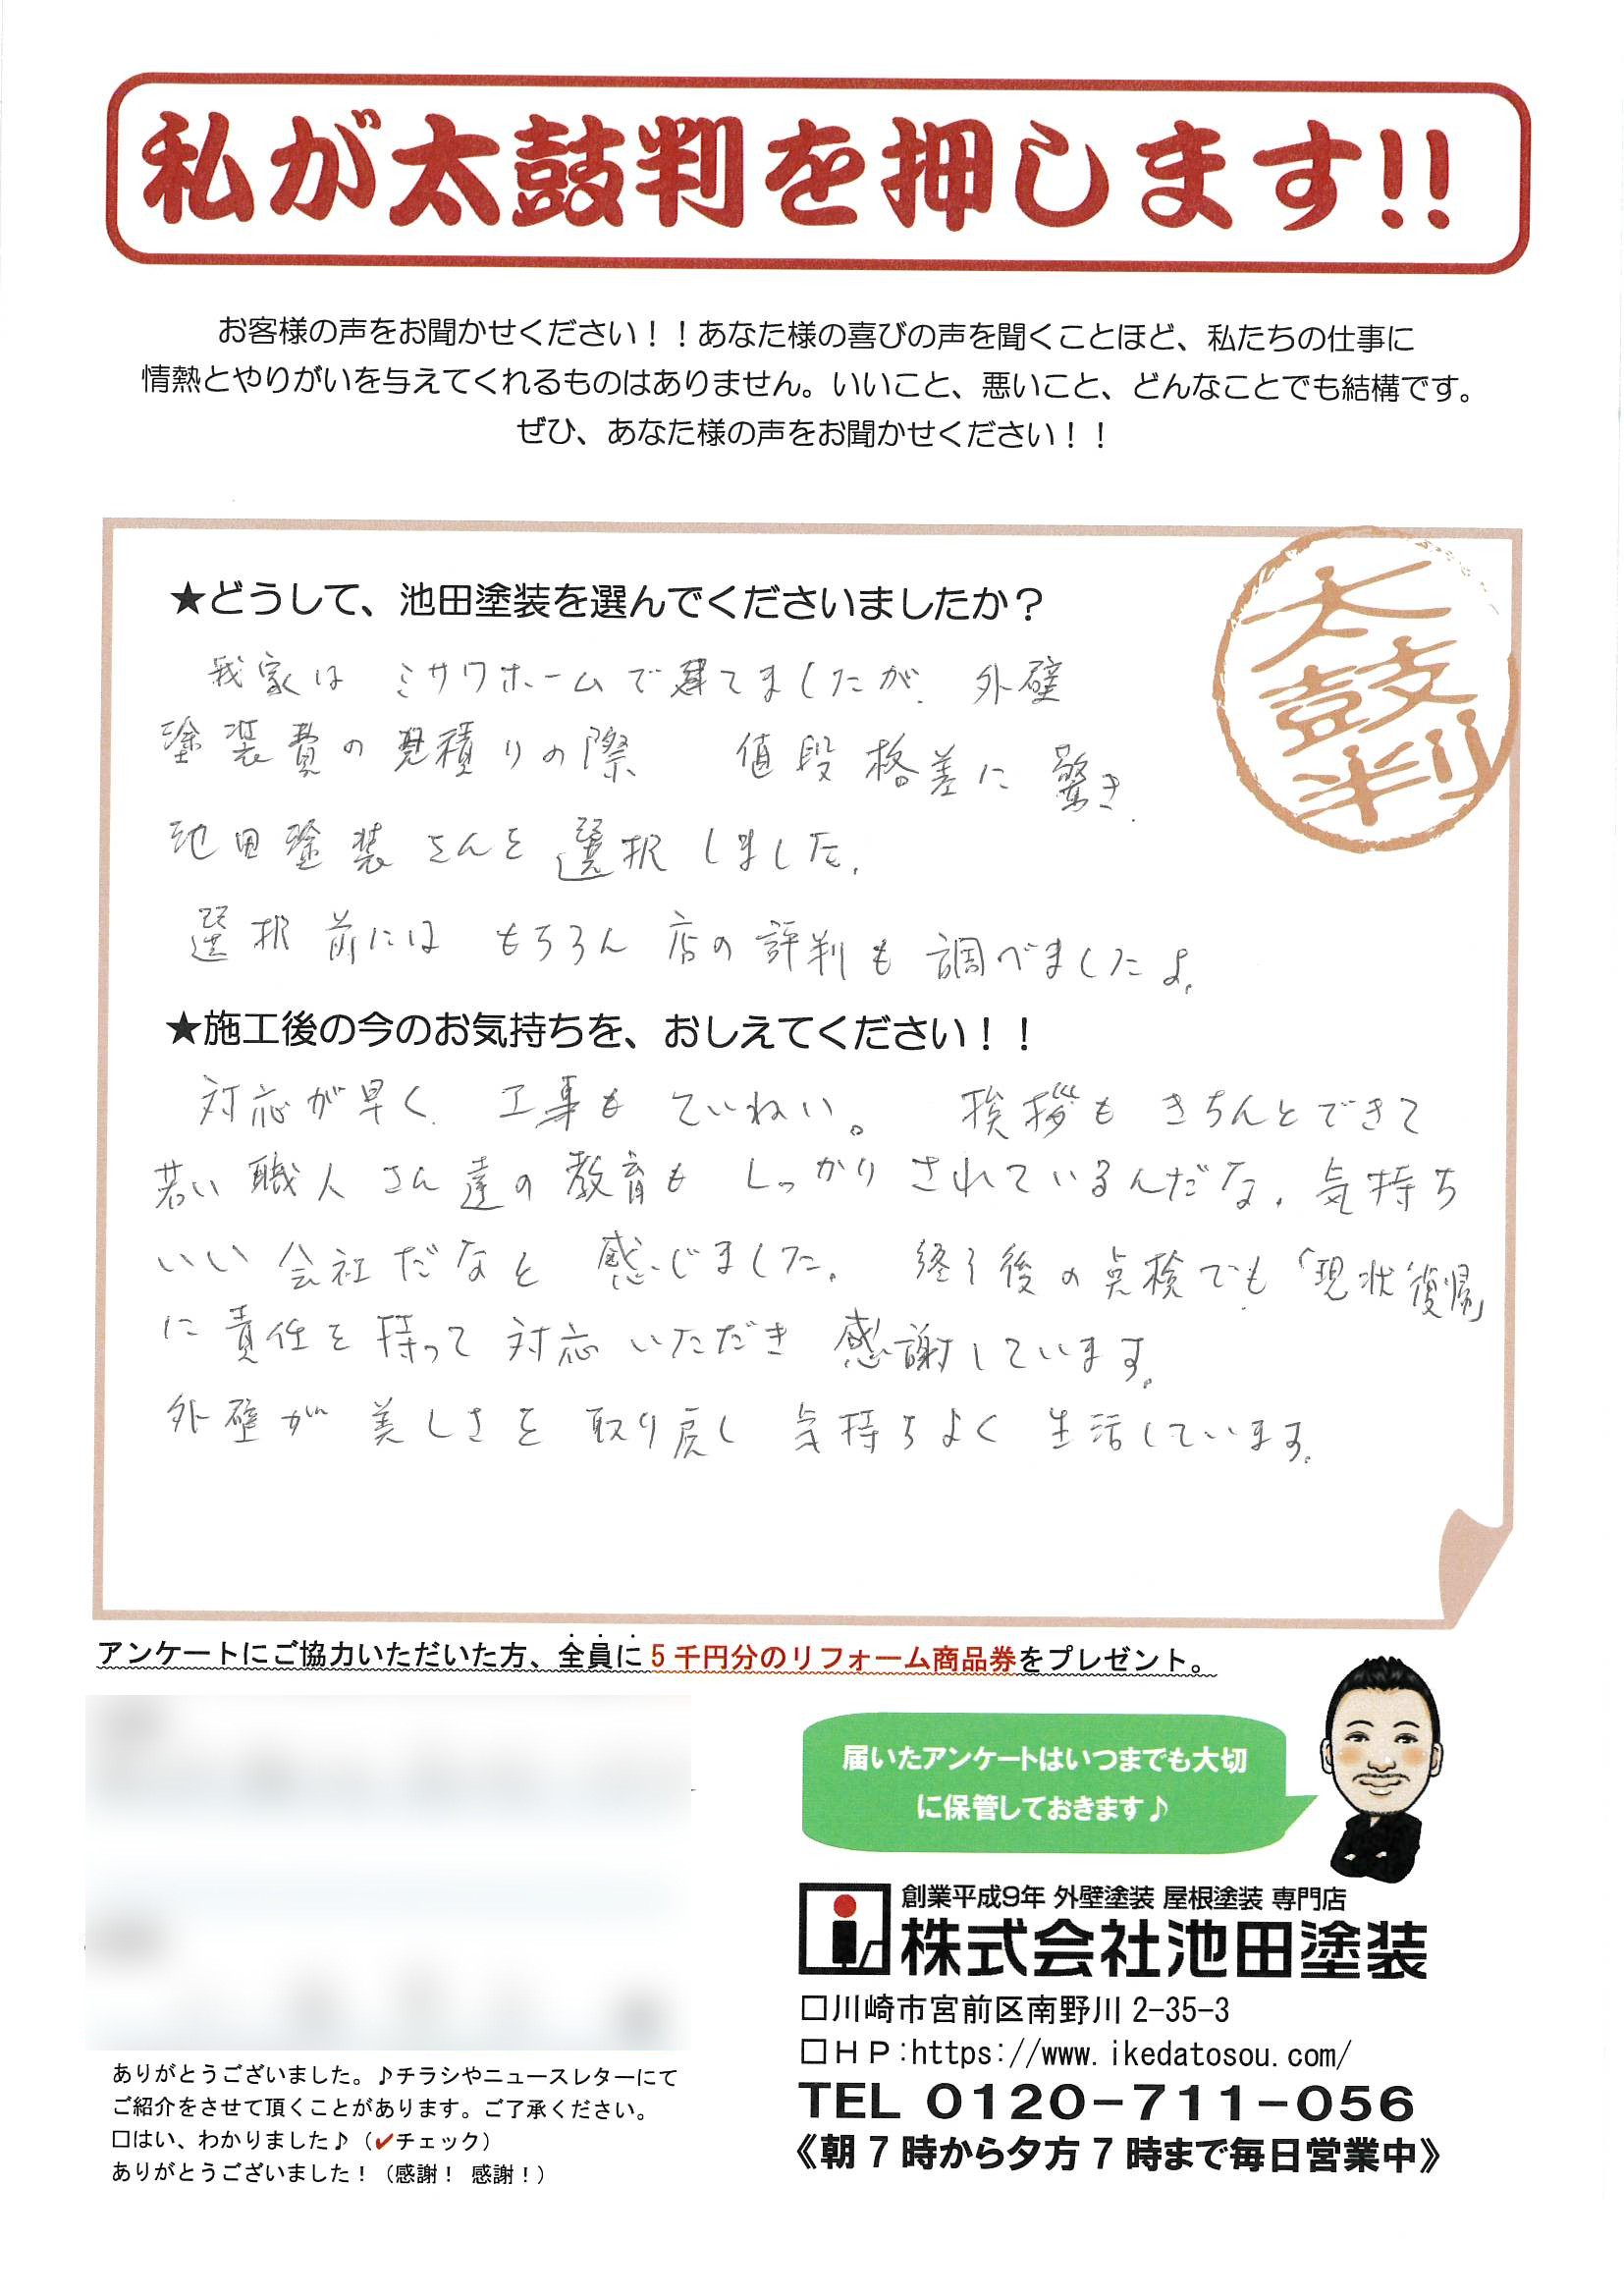 私が太鼓判を押します!!
お客様の声をお聞かせください！！あなた様の喜びの声を聞くことほど、私たちの仕事に
情熱とやりがいを与えてくれるものはありません。いいこと、悪いこと、どんなことでも結構です。
ぜひ、あなた様の声をお聞かせください！！
太鼓判
★どうして、池田塗装を選んでくださいましたか？
我家は ミサワホームで建てましたが、外壁
塗装費の見積りの際 値段格差に驚き、
池田塗装さんを選択しました。
選択前には もちろん 店の評判も調べましたよ。
★施工後の今のお気持ちを、おしえてください！！
対応が早く、工事も ていねい。 挨拶も きちんとできて
若い職人さん達の教育も しっかりされているんだな、気持ち
いい会社だなと 感じました。 終了後の点検でも「現状復帰」
に責任を持って対応いただき 感謝しています。
外壁が美しさを取り戻し 気持ちよく生活しています。
アンケートにご協力いただいた方、全員に5千円分のリフォーム商品券をプレゼント。
届いたアンケートはいつまでも大切
に保管しておきます♪
創業平成9年 外壁塗装 屋根塗装 専門店
株式会社池田塗装
□川崎市宮前区南野川2-35-3
□ＨＰ:https://www.ikedatosou.com/
TEL 0120-711-056
《朝7時から夕方7時まで毎日営業中》
ありがとうございました。♪チラシやニュースレターにて
ご紹介をさせて頂くことがあります。ご了承ください。
□はい、わかりました♪（✔チェック）
ありがとうございました！（感謝！ 感謝！）